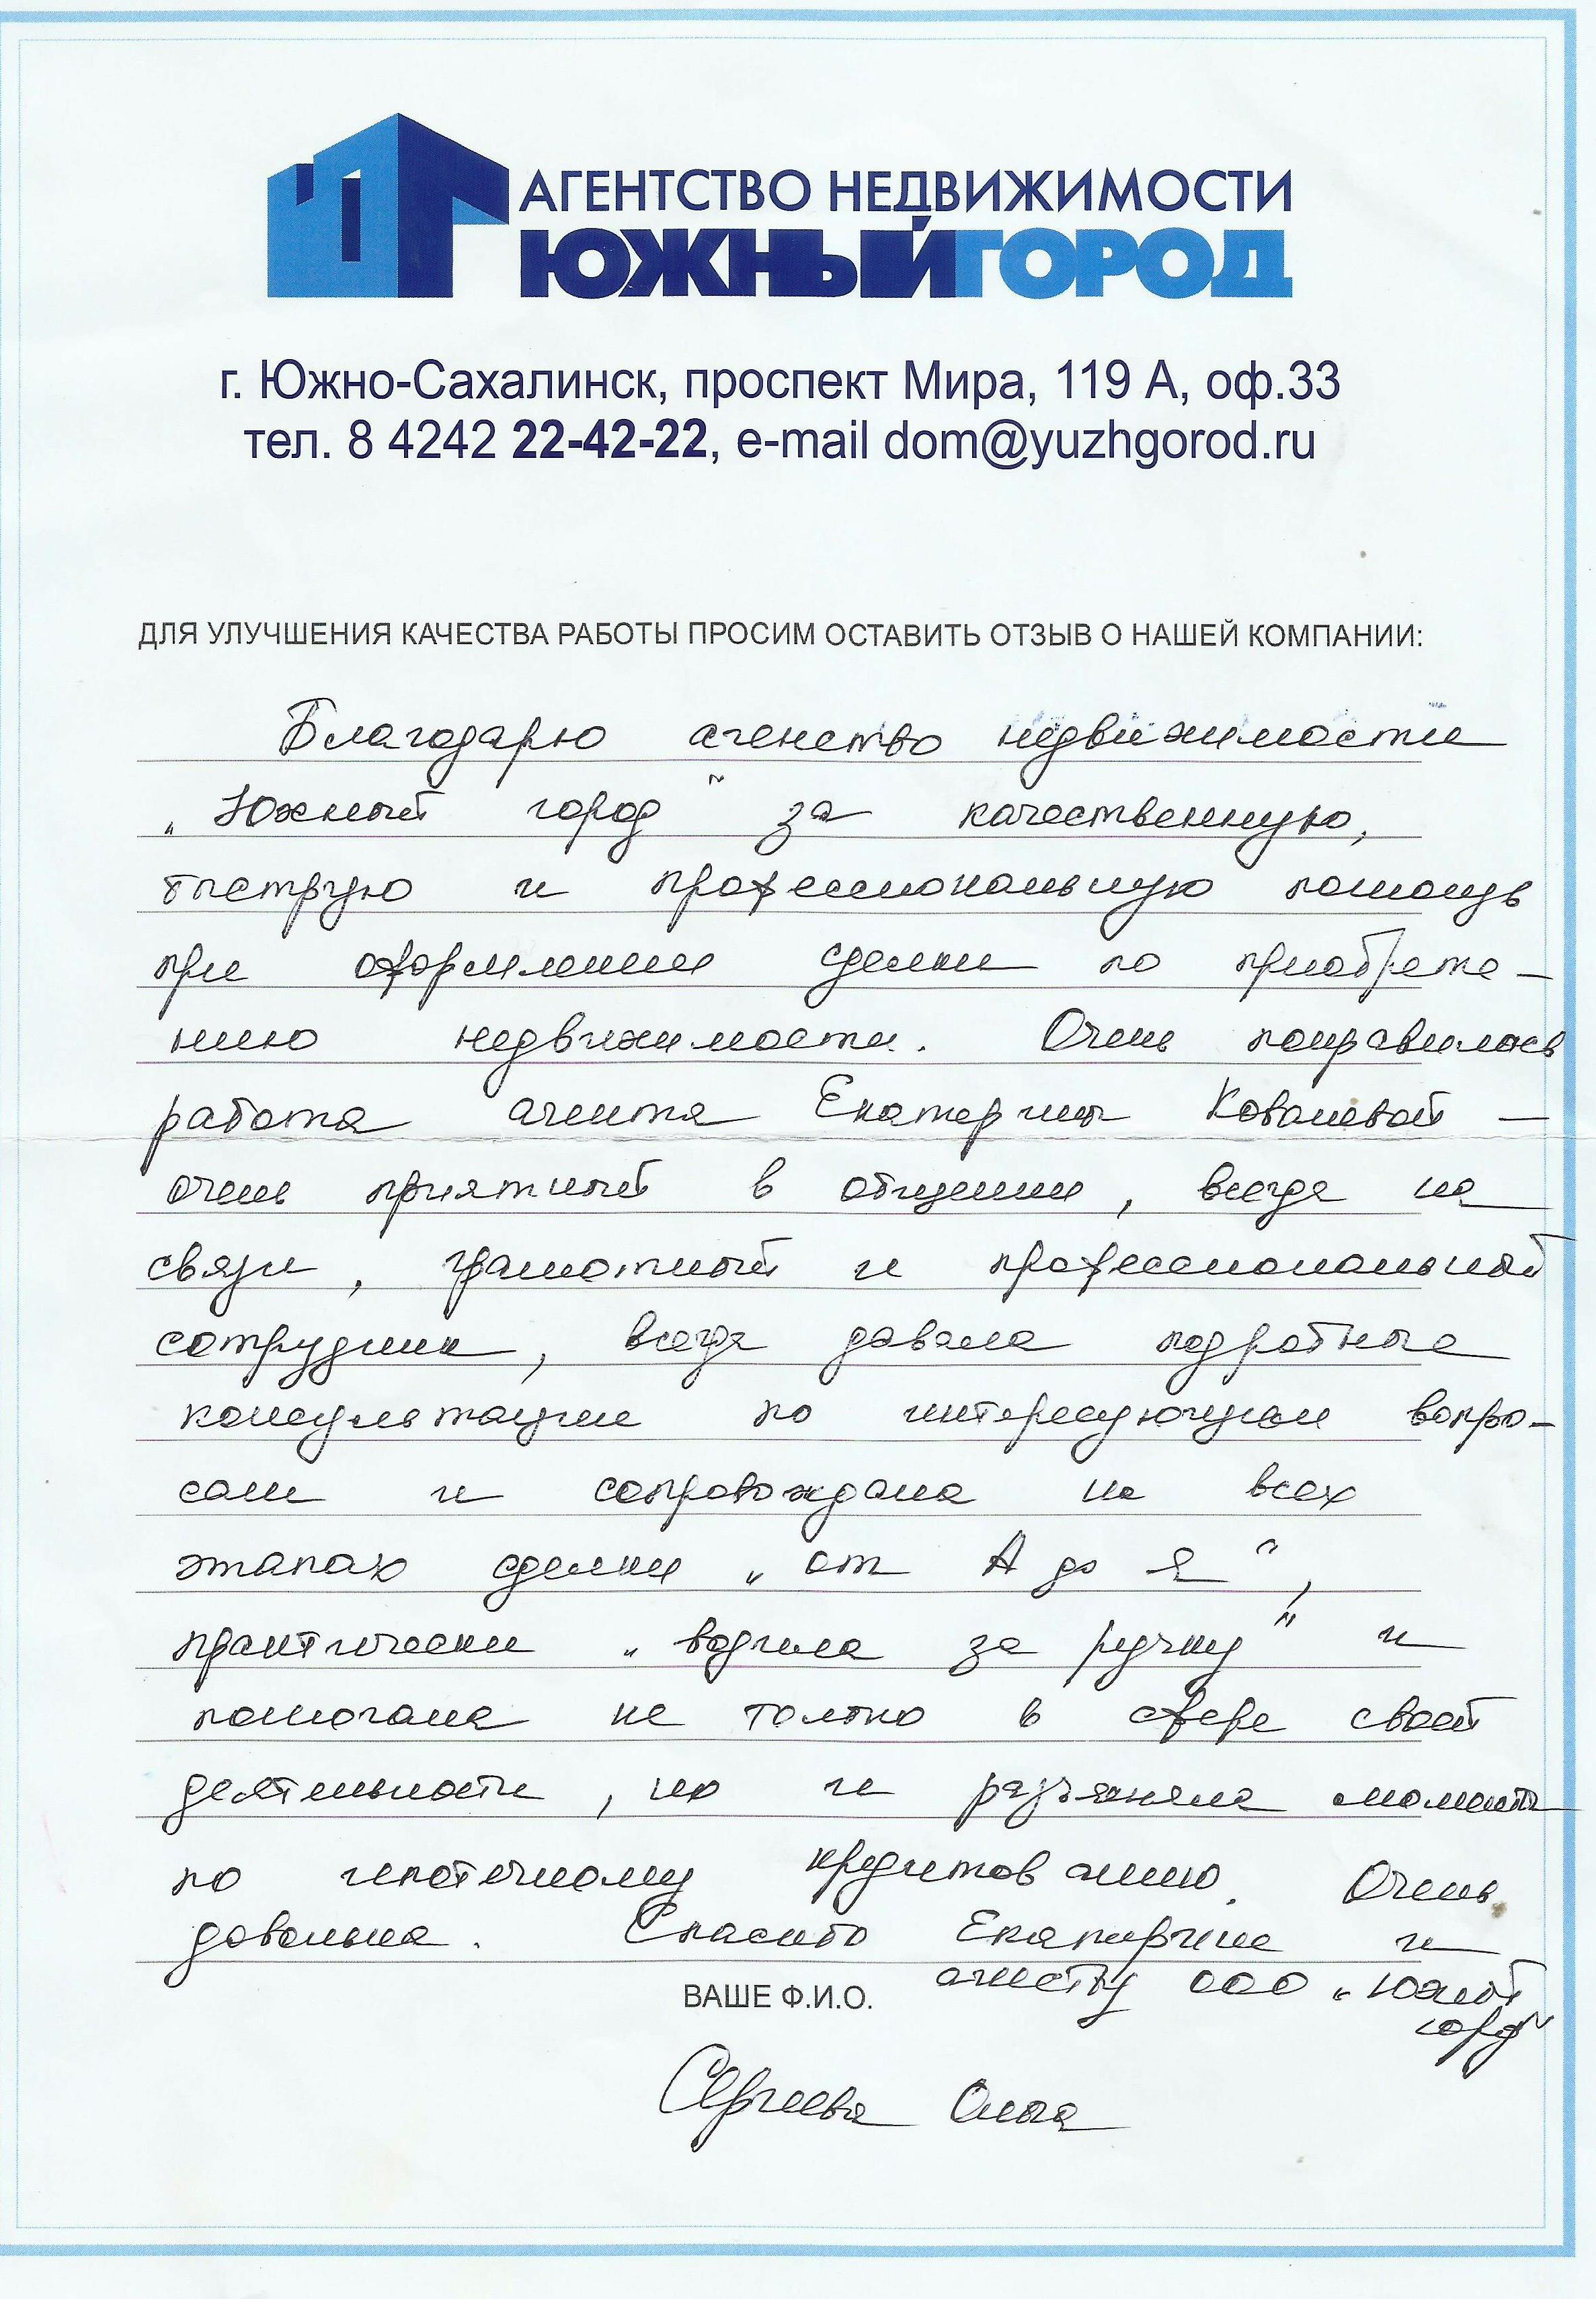 АГЕНТСТВО НЕДВИЖИМОСТИ
ЮЖНЫЙГОРОД
г. Южно-Сахалинск, проспект Мира, 119 А, оф.33
тел. 8 4242 22-42-22, e-mail dom@yuzhgorod.ru
ДЛЯ УЛУЧШЕНИЯ КАЧЕСТВА РАБОТЫ ПРОСИМ ОСТАВИТЬ ОТЗЫВ О НАШЕЙ КОМПАНИИ:
Благодарю агенство недвижимости
„Южный город" за качественную,
быструю и профессиональную помощь
при оформлении сделки по приобрете-
нию недвижимости. Очень понравилась
работа агента Екатерины Ковалевой –
очень приятный в общении, всегда на
связи, грамотный и профессиональный
сотрудник, всегда давала подробные
консультации по интересующим вопро-
сам и сопровождала на всех
этапах сделки „от А до Я",
практически „водила за ручку" и
помогала не только в сфере своей
деятельности, но и разъясняла моменты
по ипотечному кредитованию. Очень
довольна. Спасибо Екатерине и
ВАШЕ Ф.И.О. агенству ООО „Южный
город"
Сергеева Ольга